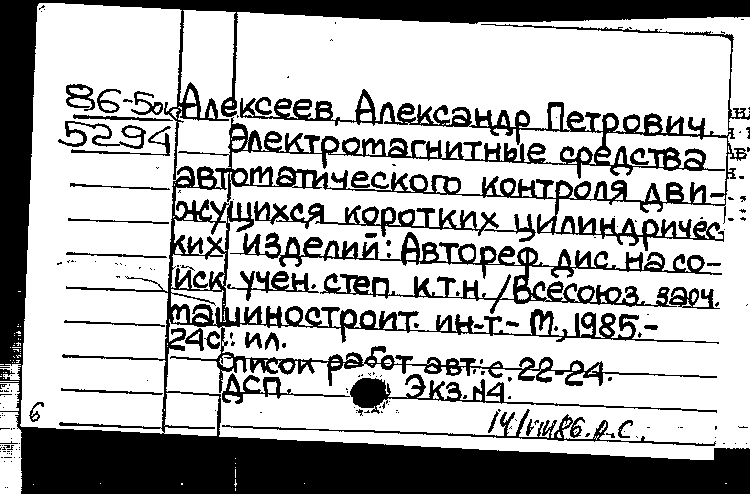 86-5ок Алексеев, Александр Петрович.
5294 Электромагнитные средства
автоматического контроля дви-
жущихся коротких цилиндричес-
ких изделий: Автореф. дис. на со-
иск. учен. степ. к.т.н. / Всесоюз. заоч.
машиностроит. ин-т. - М., 1985. -
24с.: ил.
Список работ авт.: с. 22-24.
ДСП. Экз. N4.
6 14/VIII86. Д.С.